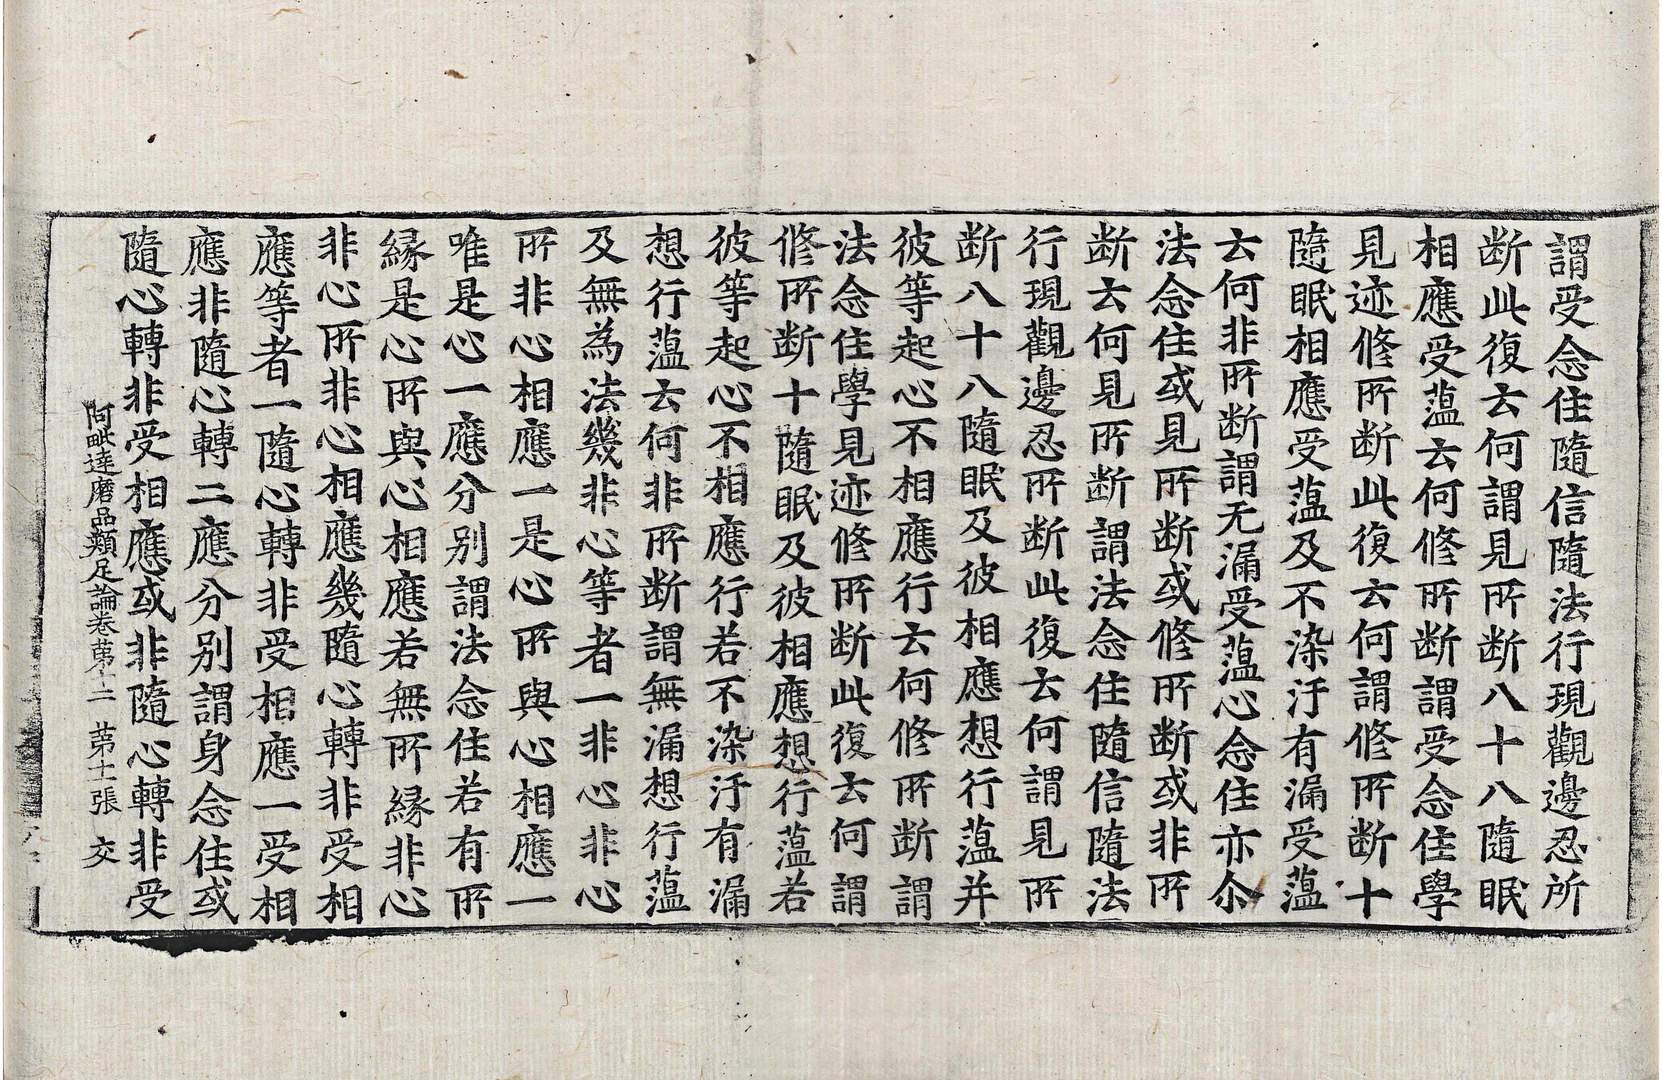 謂受念住隨信隨法行現觀邊忍所
断此復云何謂見所断八十八隨眠
相應受薀云何修所断謂受念住學
見迹修所断此復云何謂修所断十
隨眠相應受薀及不染汙有漏受薀
云何非所断謂无漏受薀心念住亦尒
法念住或見所断或修所断或非所
断云何見所断謂法念住隨信隨法
行現觀邊忍所断此復云何謂見所
断八十八隨眠及彼相應想行薀并
彼等起心不相應行云何修所断謂
法念住學見迹修所断此復云何謂
修所断十隨眠及彼相應想行薀若
彼等起心不相應行若不染汙有漏
想行薀云何非所断謂無漏想行薀
及無為法幾非心等者一非心非心
所非心相應一是心所與心相應一
唯是心一應分別謂法念住若有所
緣是心所與心相應若無所緣非心
非心所非心相應幾隨心轉非受相
應等者一隨心轉非受相應一受相
應非隨心轉二應分別謂身念住或
隨心轉非受相應或非隨心轉非受
阿毗達磨品類足論卷苐十二 苐十張 交